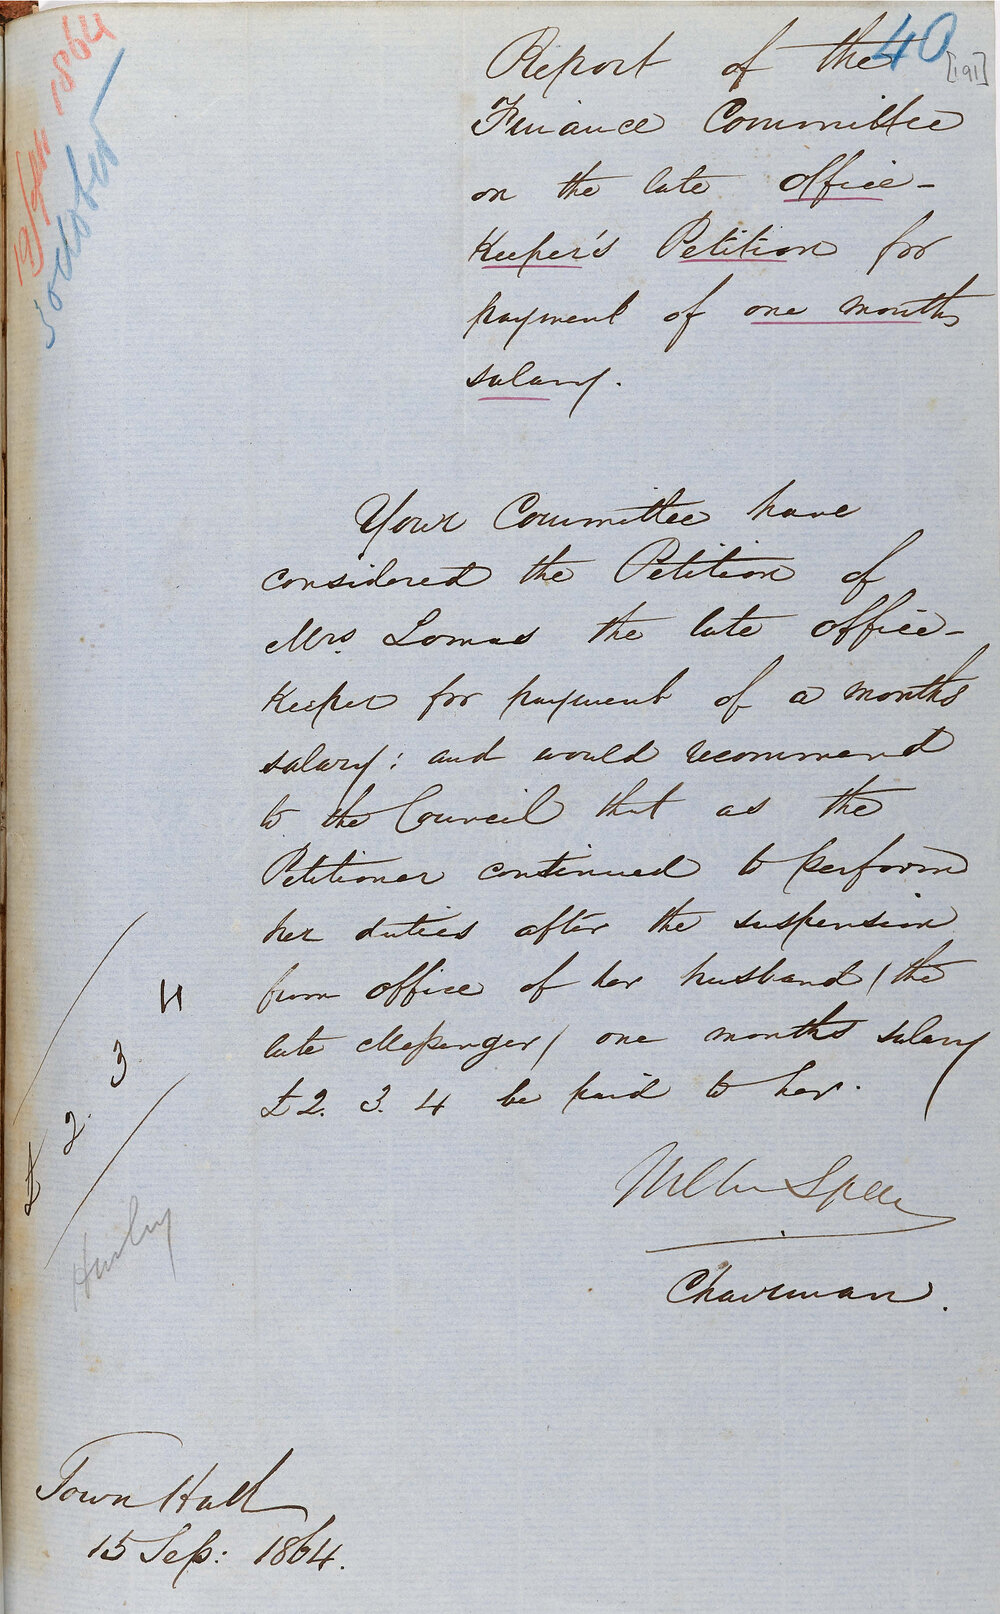 40
[191]
19/Sep 1864
3 October
Report of the
Finance Committee
on the late office-
Keeper's Petition for
payment of one months
salary.
Your Committee have
considered the Petition of
Mrs. Lomas the late office-
Keeper for payment of a months
salary; and would recommend
to the Council that as the
Petitioner continued to perform
her duties after the suspension
from office of her husband (the
late Messenger) one months salary
£2. 3. 4 be paid to her.
£ 2. 3 4
Chairman.
Town Hall
15 Sep: 1864.